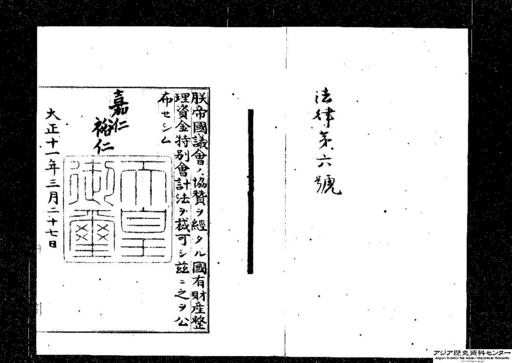 法律第六號
朕帝國議會ノ協贊ヲ經タル國有財産整
理資金特別會計法ヲ裁可シ茲ニ之ヲ公
布セシム
嘉仁
裕仁
天皇
御璽
大正十一年三月二十七日
アジア歴史資料センター
Japan Center for Asian Historical Records